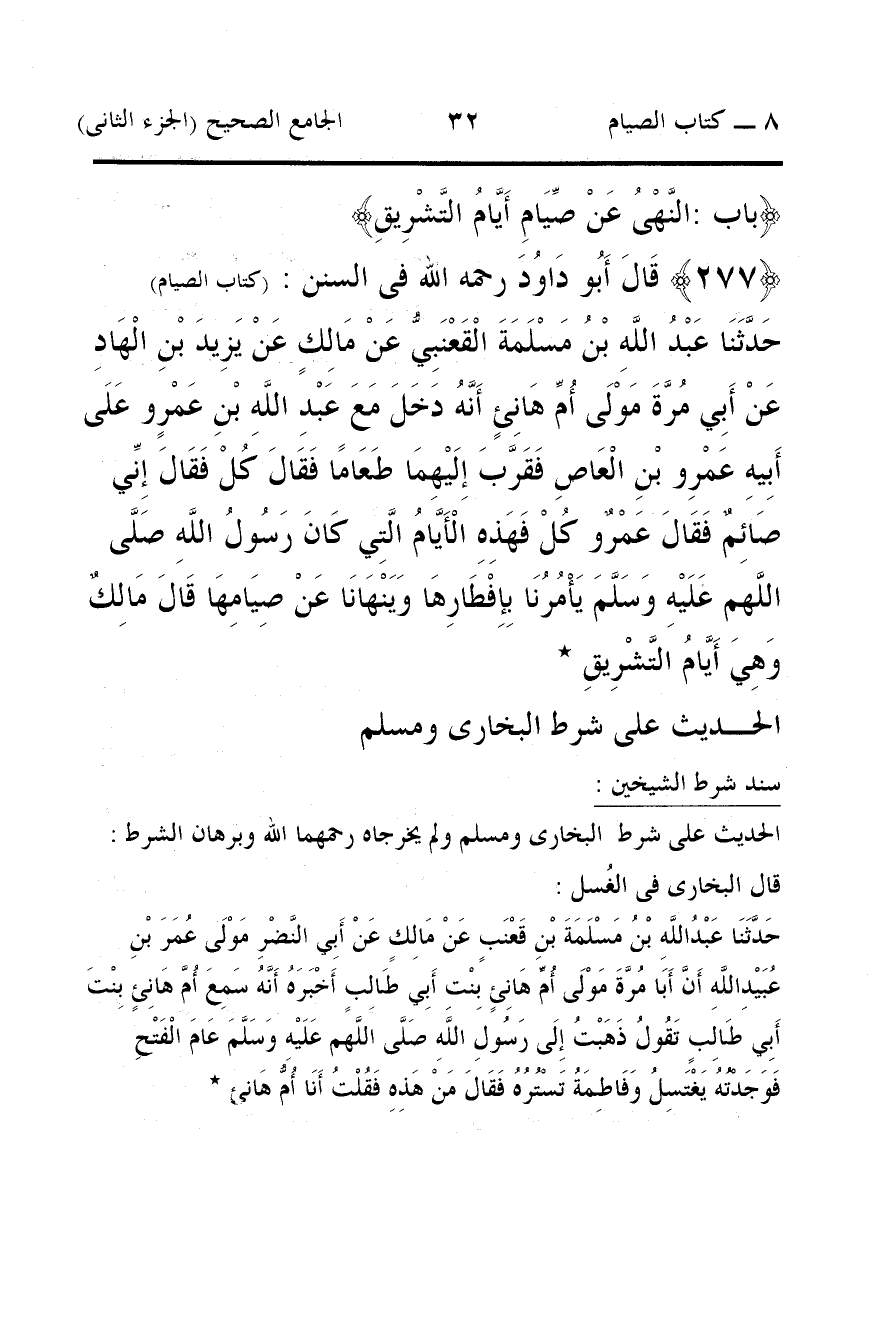 ٨ ــ كتاب الصيام ٣٢ الجامع الصحيح (الجزء الثانى)
﴿باب :النَّهْىُ عَنْ صِّيَامِ أَيَّامُ التَّشْرِيقِ﴾
﴿٢٧٧﴾ قَالَ أَبُو دَاوُدَ رحمه الله فى السنن : (كتاب الصيام)
حَدَّثَنَا عَبْدُ اللَّهِ بْنُ مَسْلَمَةَ الْقَعْنَبِيُّ عَنْ مَالِكٍ عَنْ يَزِيدَ بْنِ الْهَادِ
عَنْ أَبِي مُرَّةَ مَوْلَى أُمِّ هَانِئٍ أَنَّهُ دَخَلَ مَعَ عَبْدِ اللَّهِ بْنِ عَمْرٍو عَلَى
أَبِيهِ عَمْرِو بْنِ الْعَاصِ فَقَرَّبَ إِلَيْهِمَا طَعَامًا فَقَالَ كُلْ فَقَالَ إِنِّي
صَائِمٌ فَقَالَ عَمْرٌو كُلْ فَهَذِهِ الْأَيَّامُ الَّتِي كَانَ رَسُولُ اللَّهِ صَلَّى
اللَّهم عَلَيْهِ وَسَلَّمَ يَأْمُرُنَا بِإِفْطَارِهَا وَيَنْهَانَا عَنْ صِيَامِهَا قَالَ مَالِكٌ
وَهِيَ أَيَّامُ التَّشْرِيقِ *
الحـــديث على شرط البخارى ومسلم
سند شرط الشيخين :
الحديث على شرط البخارى ومسلم ولم يخرجاه رحمهما الله وبرهان الشرط :
قال البخارى فى الغُسل :
حَدَّثَنَا عَبْدُاللَّهِ بْنُ مَسْلَمَةَ بْنِ قَعْنَبٍ عَنْ مَالِكٍ عَنْ أَبِي النَّضْرِ مَوْلَى عُمَرَ بْنِ
عُبَيْدِاللَّهِ أَنَّ أَبَا مُرَّةَ مَوْلَى أُمِّ هَانِئٍ بِنْتِ أَبِي طَالِبٍ أَخْبَرَهُ أَنَّهُ سَمِعَ أُمَّ هَانِئٍ بِنْتَ
أَبِي طَالِبٍ تَقُولُ ذَهَبْتُ إِلَى رَسُولِ اللَّهِ صَلَّى اللَّهم عَلَيْهِ وَسَلَّمَ عَامَ الْفَتْحِ
فَوَجَدْتُهُ يَغْتَسِلُ وَفَاطِمَةُ تَسْتُرُهُ فَقَالَ مَنْ هَذِهِ فَقُلْتُ أَنَا أُمُّ هَانِئٍ *